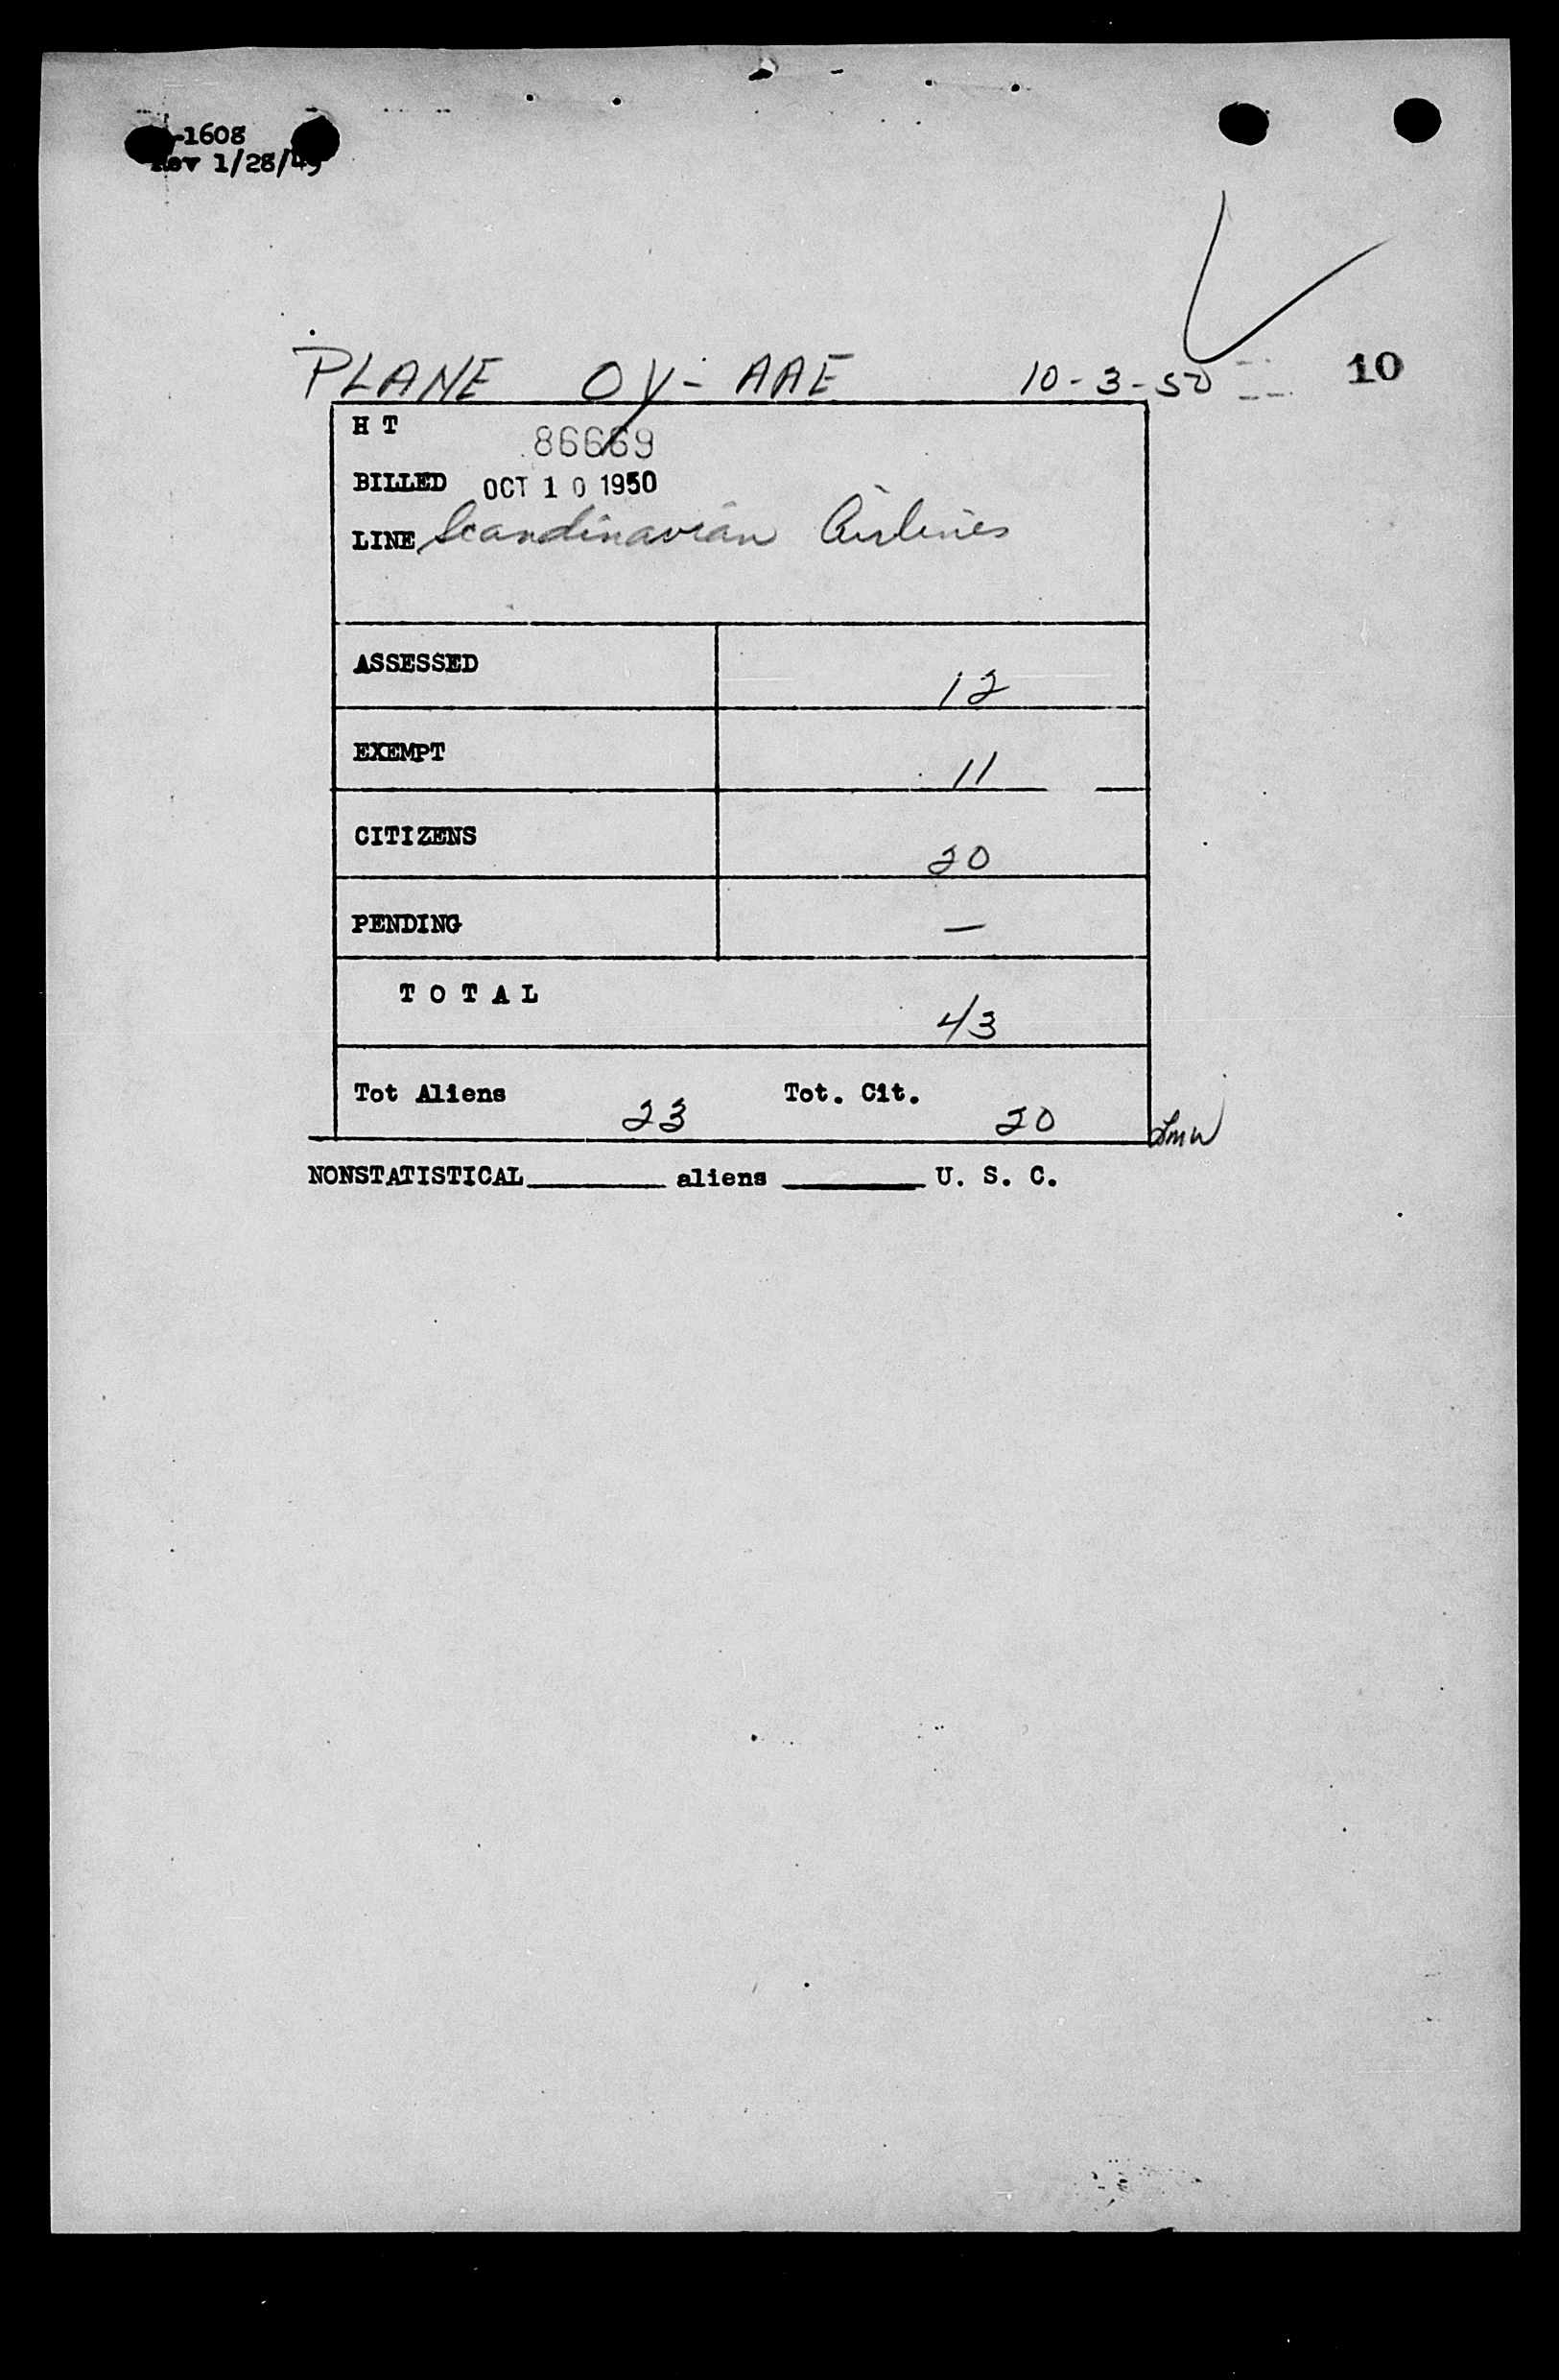 -1608
Rev 1/28/49
PLANE OY-AAE 10-3-50 10
H T 86669
BILLED OCT 10 1950
LINE Scandinavian Airlines
ASSESSED 12
EXEMPT 11
CITIZENS 20
PENDING —
TOTAL 43
Tot Aliens 23 Tot. Cit. 20
NONSTATISTICAL________ aliens ________ U. S. C.